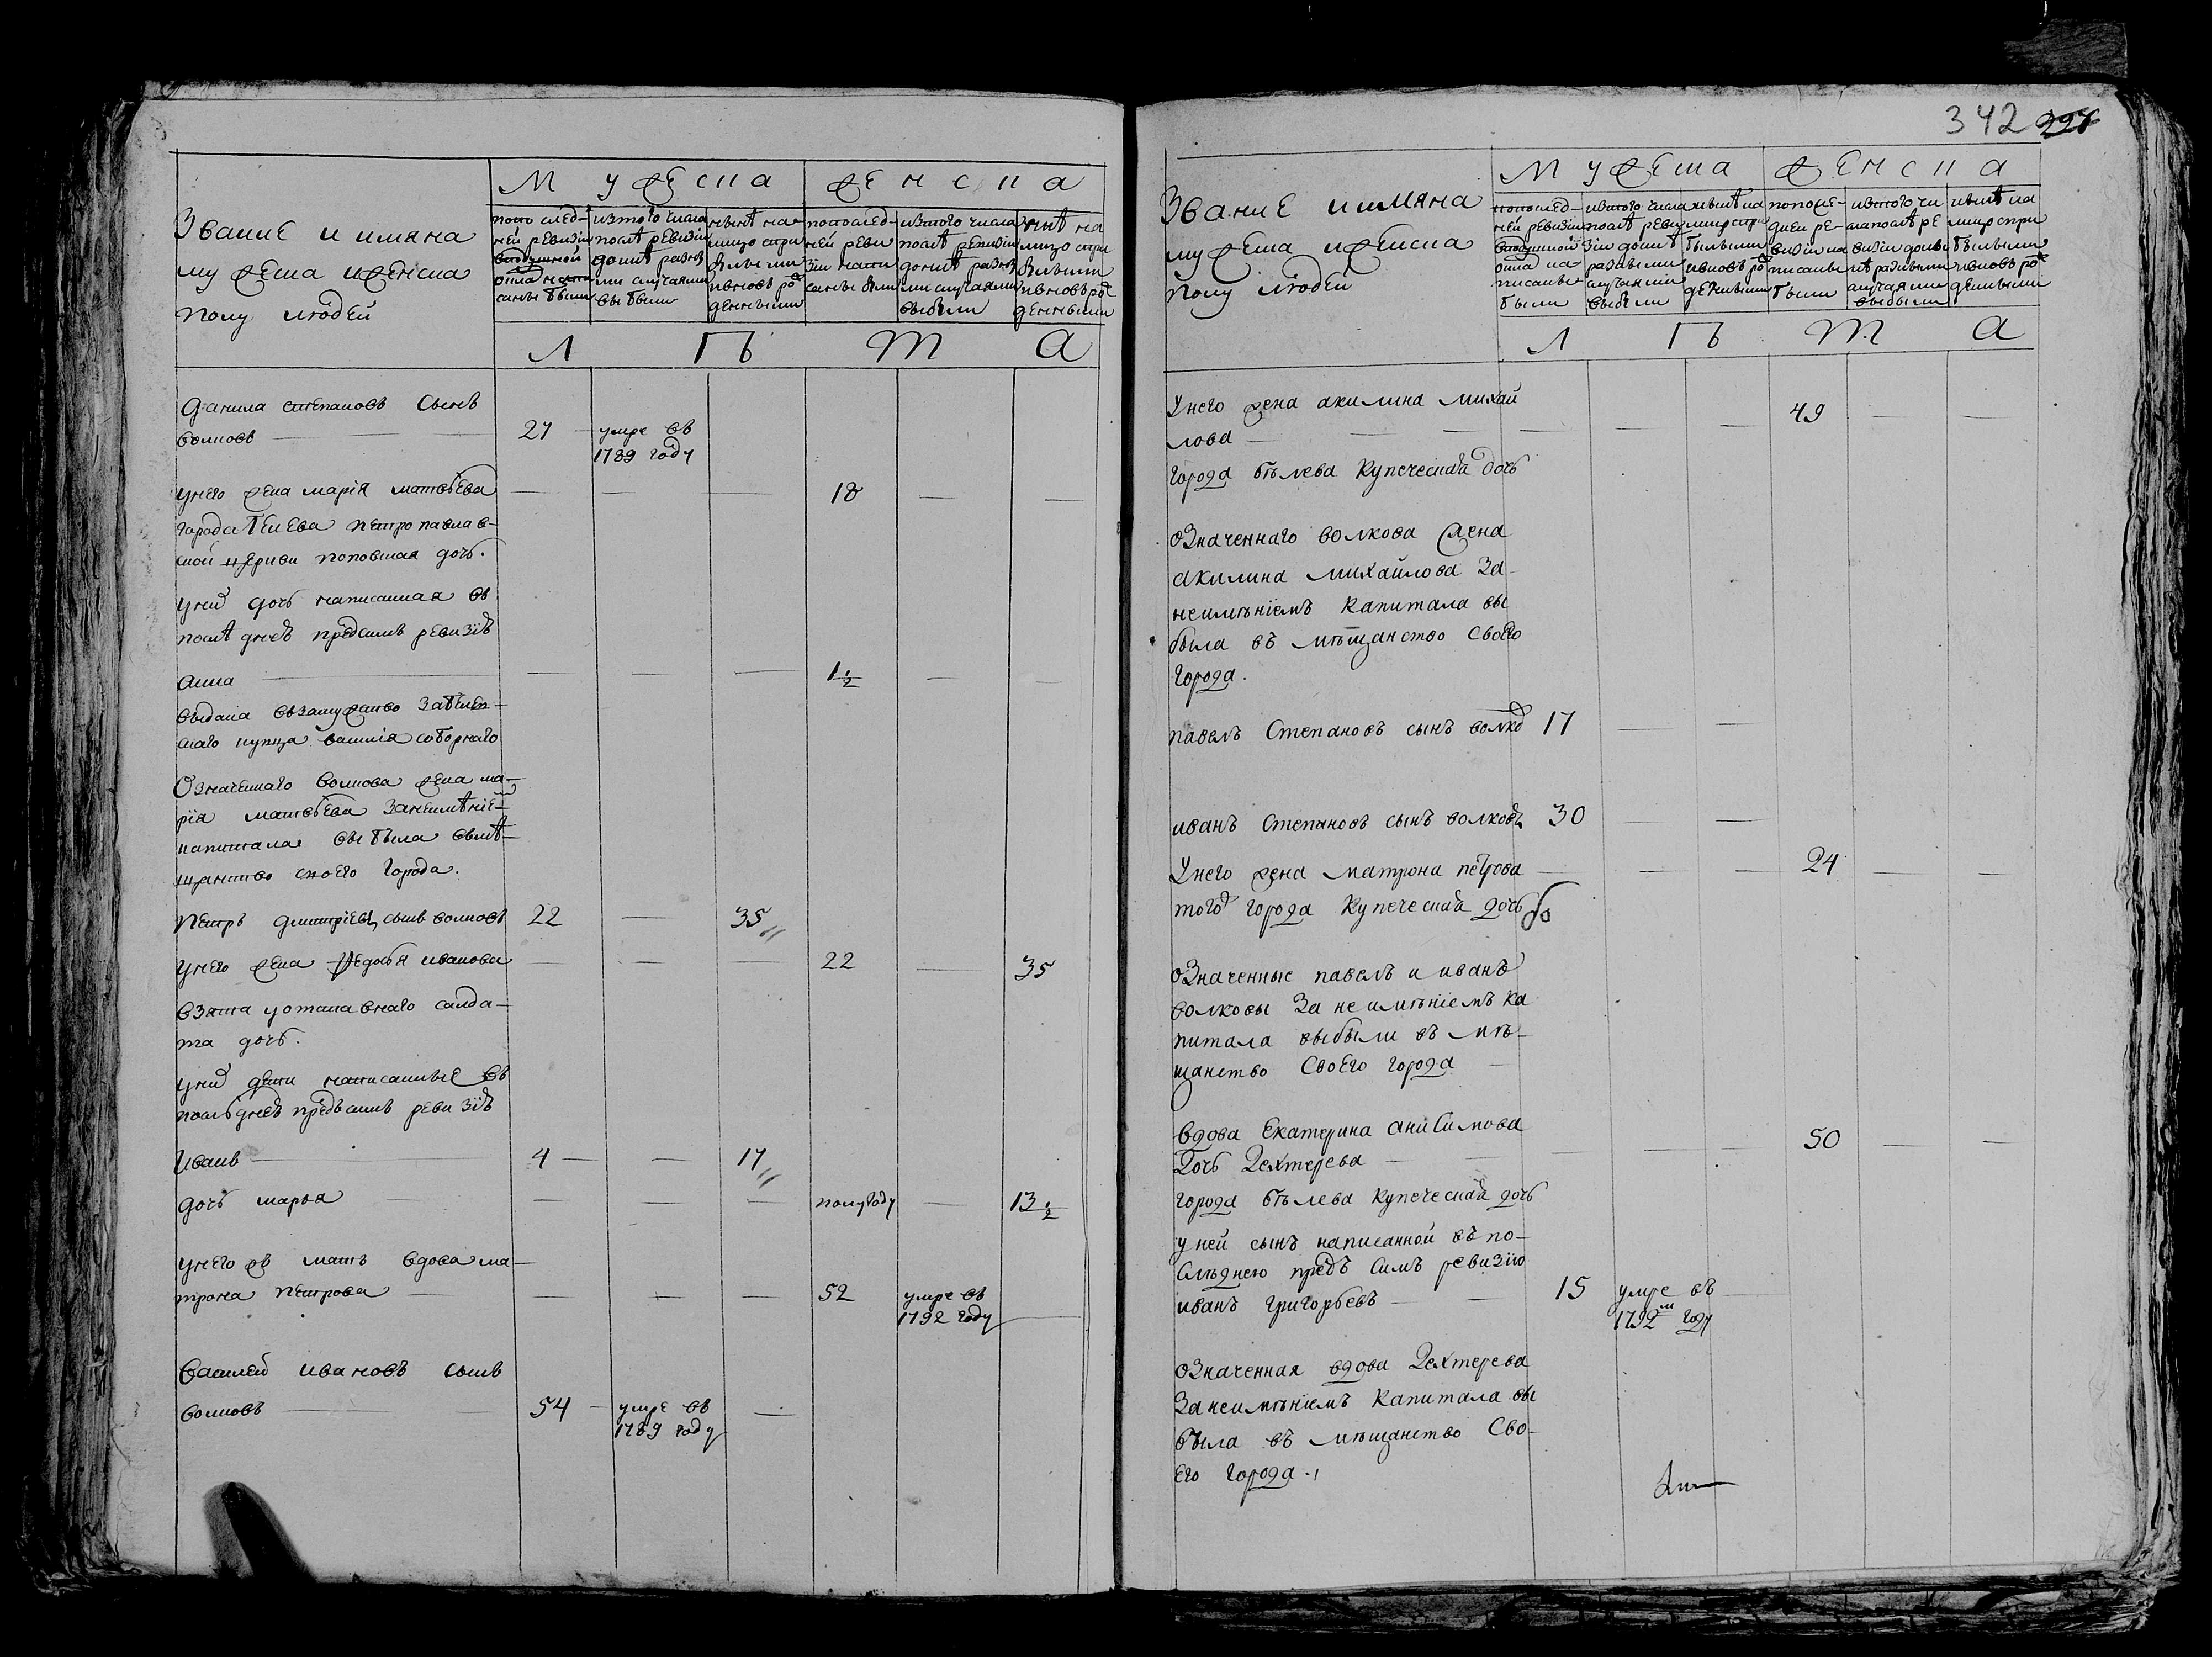 342
Звание и имяна
мужеска иженска
полу людей
Мужеска женска
по последней ревизии в подушной оклад написаны были
изтого числа после ревизии доныне разными случаями выбыли
ныне налицо сприбылыми ивновь рожденными
попоследней ревизии написаны были
изтого числа после ревизии доныне разными случаями выбыли
ныне налицо сприбылыми ивновь рожденными
Л Ѣ Т А
Данила степановъ сынъ
волковъ 27 умре въ
1789 году
унего жена марія матвѣева 18
города Бѣлева петропавлов-
ской церкви поповская дочь.
уних дочь написанная въ
последней предсимъ ревизіи
анна 1 1/2
выдана взамужство забѣлев-
скаго купца василія соборнаго
Означеннаго волкова жена ма-
рія матвѣева занеимѣніем
капитала выбыла вмѣ-
щанство своего города.
Петръ дмитріевъ сынъ волковъ 22 35
унего жена федосья иванова 22 35
взята уотставнаго салда-
та дочь.
уних дети написанные въ
последней предъсимъ ревизіи
Иванъ 4 17
дочь марья полугоду 13 1/2
унего ж мать вдова ма-
трона петрова 52 умре въ
1792 году
Василей ивановъ сынъ
волковъ 54 умре въ
1789 году
Звание иимяна
мужеска иженска
полу людей
Мужеска женска
попоследней ревизии вподушной оклад написаны были
изтого числа после ревизии доныне разными случаями выбыли
ныне налицо сприбылыми ивновь рожденными
попоследней ревизии написаны были
изтого числа после ревизии доныне разными случаями выбыли
ныне налицо сприбылыми ивновь рожденными
Л Ѣ Т А
Унего жена акилина михай
лова 49
города бѣлева купеческая дочь
означеннаго волкова жена
акилина михайлова за-
неимѣніемъ капитала вы
была въ мѣщанство своего
города.
павелъ Степановъ сынъ волков 17
иванъ Степановъ сынъ волковъ 30
Унего жена матрона петрова 24
того города купеческая дочь
означенные павелъ и иванъ
волковы за неимѣніемъ ка
питала выбыли въ мѣ-
щанство своего города
Вдова Екатерина анисимова 50
дочь Дехтерева
города бѣлева купеческая дочь
у ней сынъ написанной въ по-
слѣднею предъ симъ ревизію
иванъ григорьевъ 15 умре въ
1792м году
означенная вдова Дехтерева
занеимѣніемъ капитала вы
была въ мѣщанство сво-
его города.